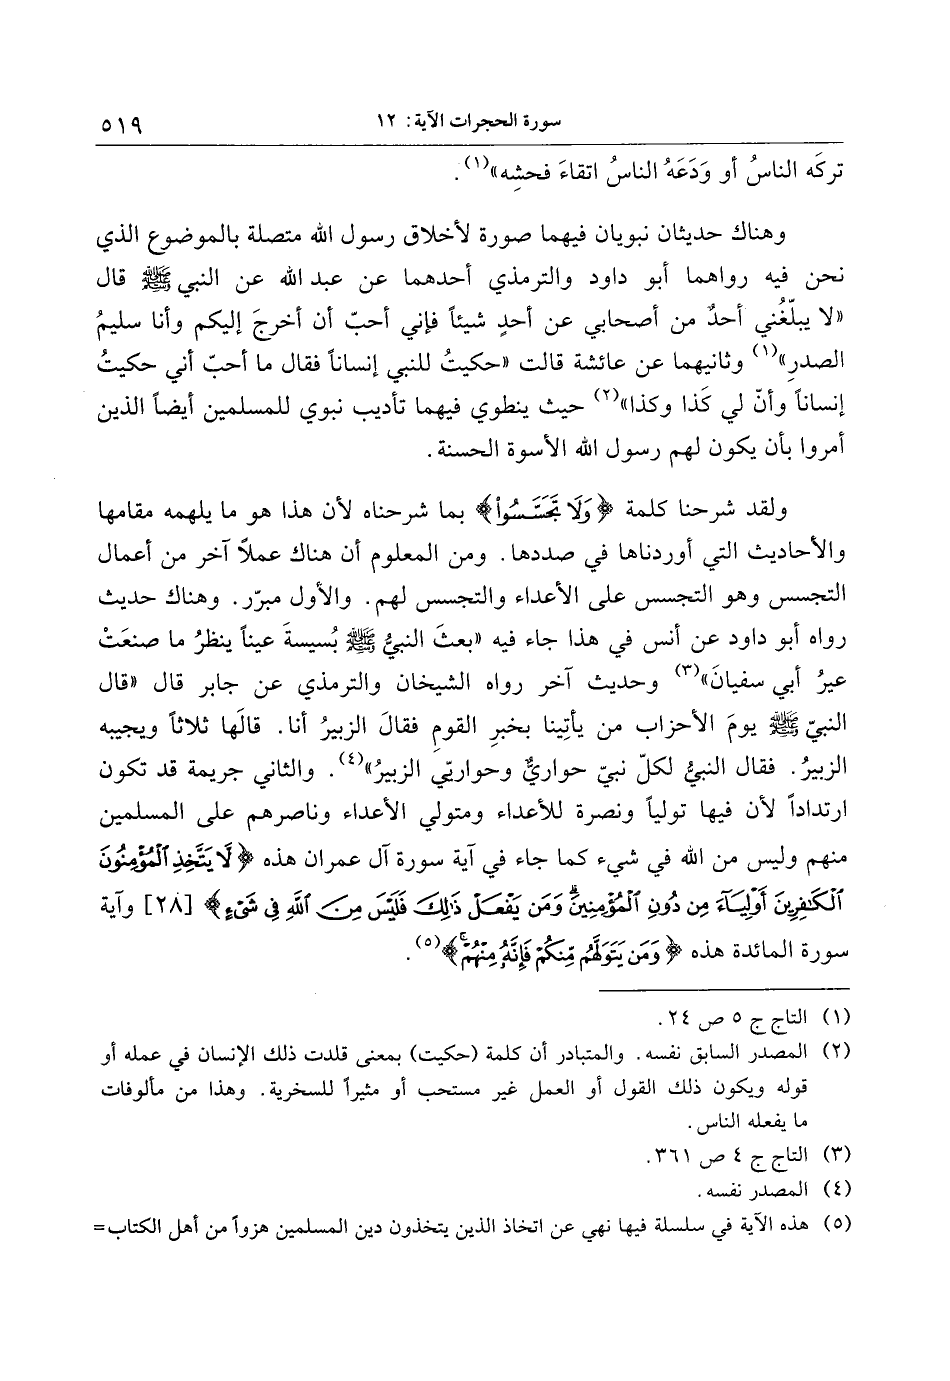 سورة الحجرات الآية: ١٢
٥١٩
تركَه الناسُ أو وَدَعَهُ الناسُ اتقاءَ فحشِه»(١).
وهناك حديثان نبويان فيهما صورة لأخلاق رسول الله متصلة بالموضوع الذي
نحن فيه رواهما أبو داود والترمذي أحدهما عن عبد الله عن النبي ﷺ قال
«لا يبلّغُني أحدٌ من أصحابي عن أحدٍ شيئاً فإني أحبّ أن أخرجَ إليكم وأنا سليمُ
الصدرِ»(١) وثانيهما عن عائشة قالت «حكيتُ للنبي إنساناً فقال ما أحبّ أني حكيتُ
إنساناً وأنّ لي كَذا وكذا»(٢) حيث ينطوي فيهما تأديب نبوي للمسلمين أيضاً الذين
أمروا بأن يكون لهم رسول الله الأسوة الحسنة.
ولقد شرحنا كلمة ﴿وَلَا تَجَسَّسُوا۟﴾ بما شرحناه لأن هذا هو ما يلهمه مقامها
والأحاديث التي أوردناها في صددها. ومن المعلوم أن هناك عملاً آخر من أعمال
التجسس وهو التجسس على الأعداء والتجسس لهم. والأول مبرّر. وهناك حديث
رواه أبو داود عن أنس في هذا جاء فيه «بعثَ النبيُّ ﷺ بُسيسةَ عيناً ينظرُ ما صنعَتْ
عيرُ أبي سفيانَ»(٣) وحديث آخر رواه الشيخان والترمذي عن جابر قال «قال
النبيّ ﷺ يومَ الأحزاب من يأتِينا بخبرِ القومِ فقالَ الزبيرُ أنا. قالَها ثلاثاً ويجيبه
الزبيرُ. فقال النبيُّ لكلّ نبيّ حواريٌّ وحواريّي الزبيرُ»(٤). والثاني جريمة قد تكون
ارتداداً لأن فيها تولياً ونصرة للأعداء ومتولي الأعداء وناصرهم على المسلمين
منهم وليس من الله في شيء كما جاء في آية سورة آل عمران هذه ﴿لَّا يَتَّخِذِ ٱلْمُؤْمِنُونَ
ٱلْكَٰفِرِينَ أَوْلِيَآءَ مِن دُونِ ٱلْمُؤْمِنِينَۖ وَمَن يَفْعَلْ ذَٰلِكَ فَلَيْسَ مِنَ ٱللَّهِ فِى شَىْءٍ﴾ [٢٨] وآية
سورة المائدة هذه ﴿وَمَن يَتَوَلَّهُم مِّنكُمْ فَإِنَّهُۥ مِنْهُمْۗ﴾(٥).
(١) التاج ج ٥ ص ٢٤.
(٢) المصدر السابق نفسه. والمتبادر أن كلمة (حكيت) بمعنى قلدت ذلك الإنسان في عمله أو
قوله ويكون ذلك القول أو العمل غير مستحب أو مثيراً للسخرية. وهذا من مألوفات
ما يفعله الناس.
(٣) التاج ج ٤ ص ٣٦١.
(٤) المصدر نفسه.
(٥) هذه الآية في سلسلة فيها نهي عن اتخاذ الذين يتخذون دين المسلمين هزواً من أهل الكتاب=